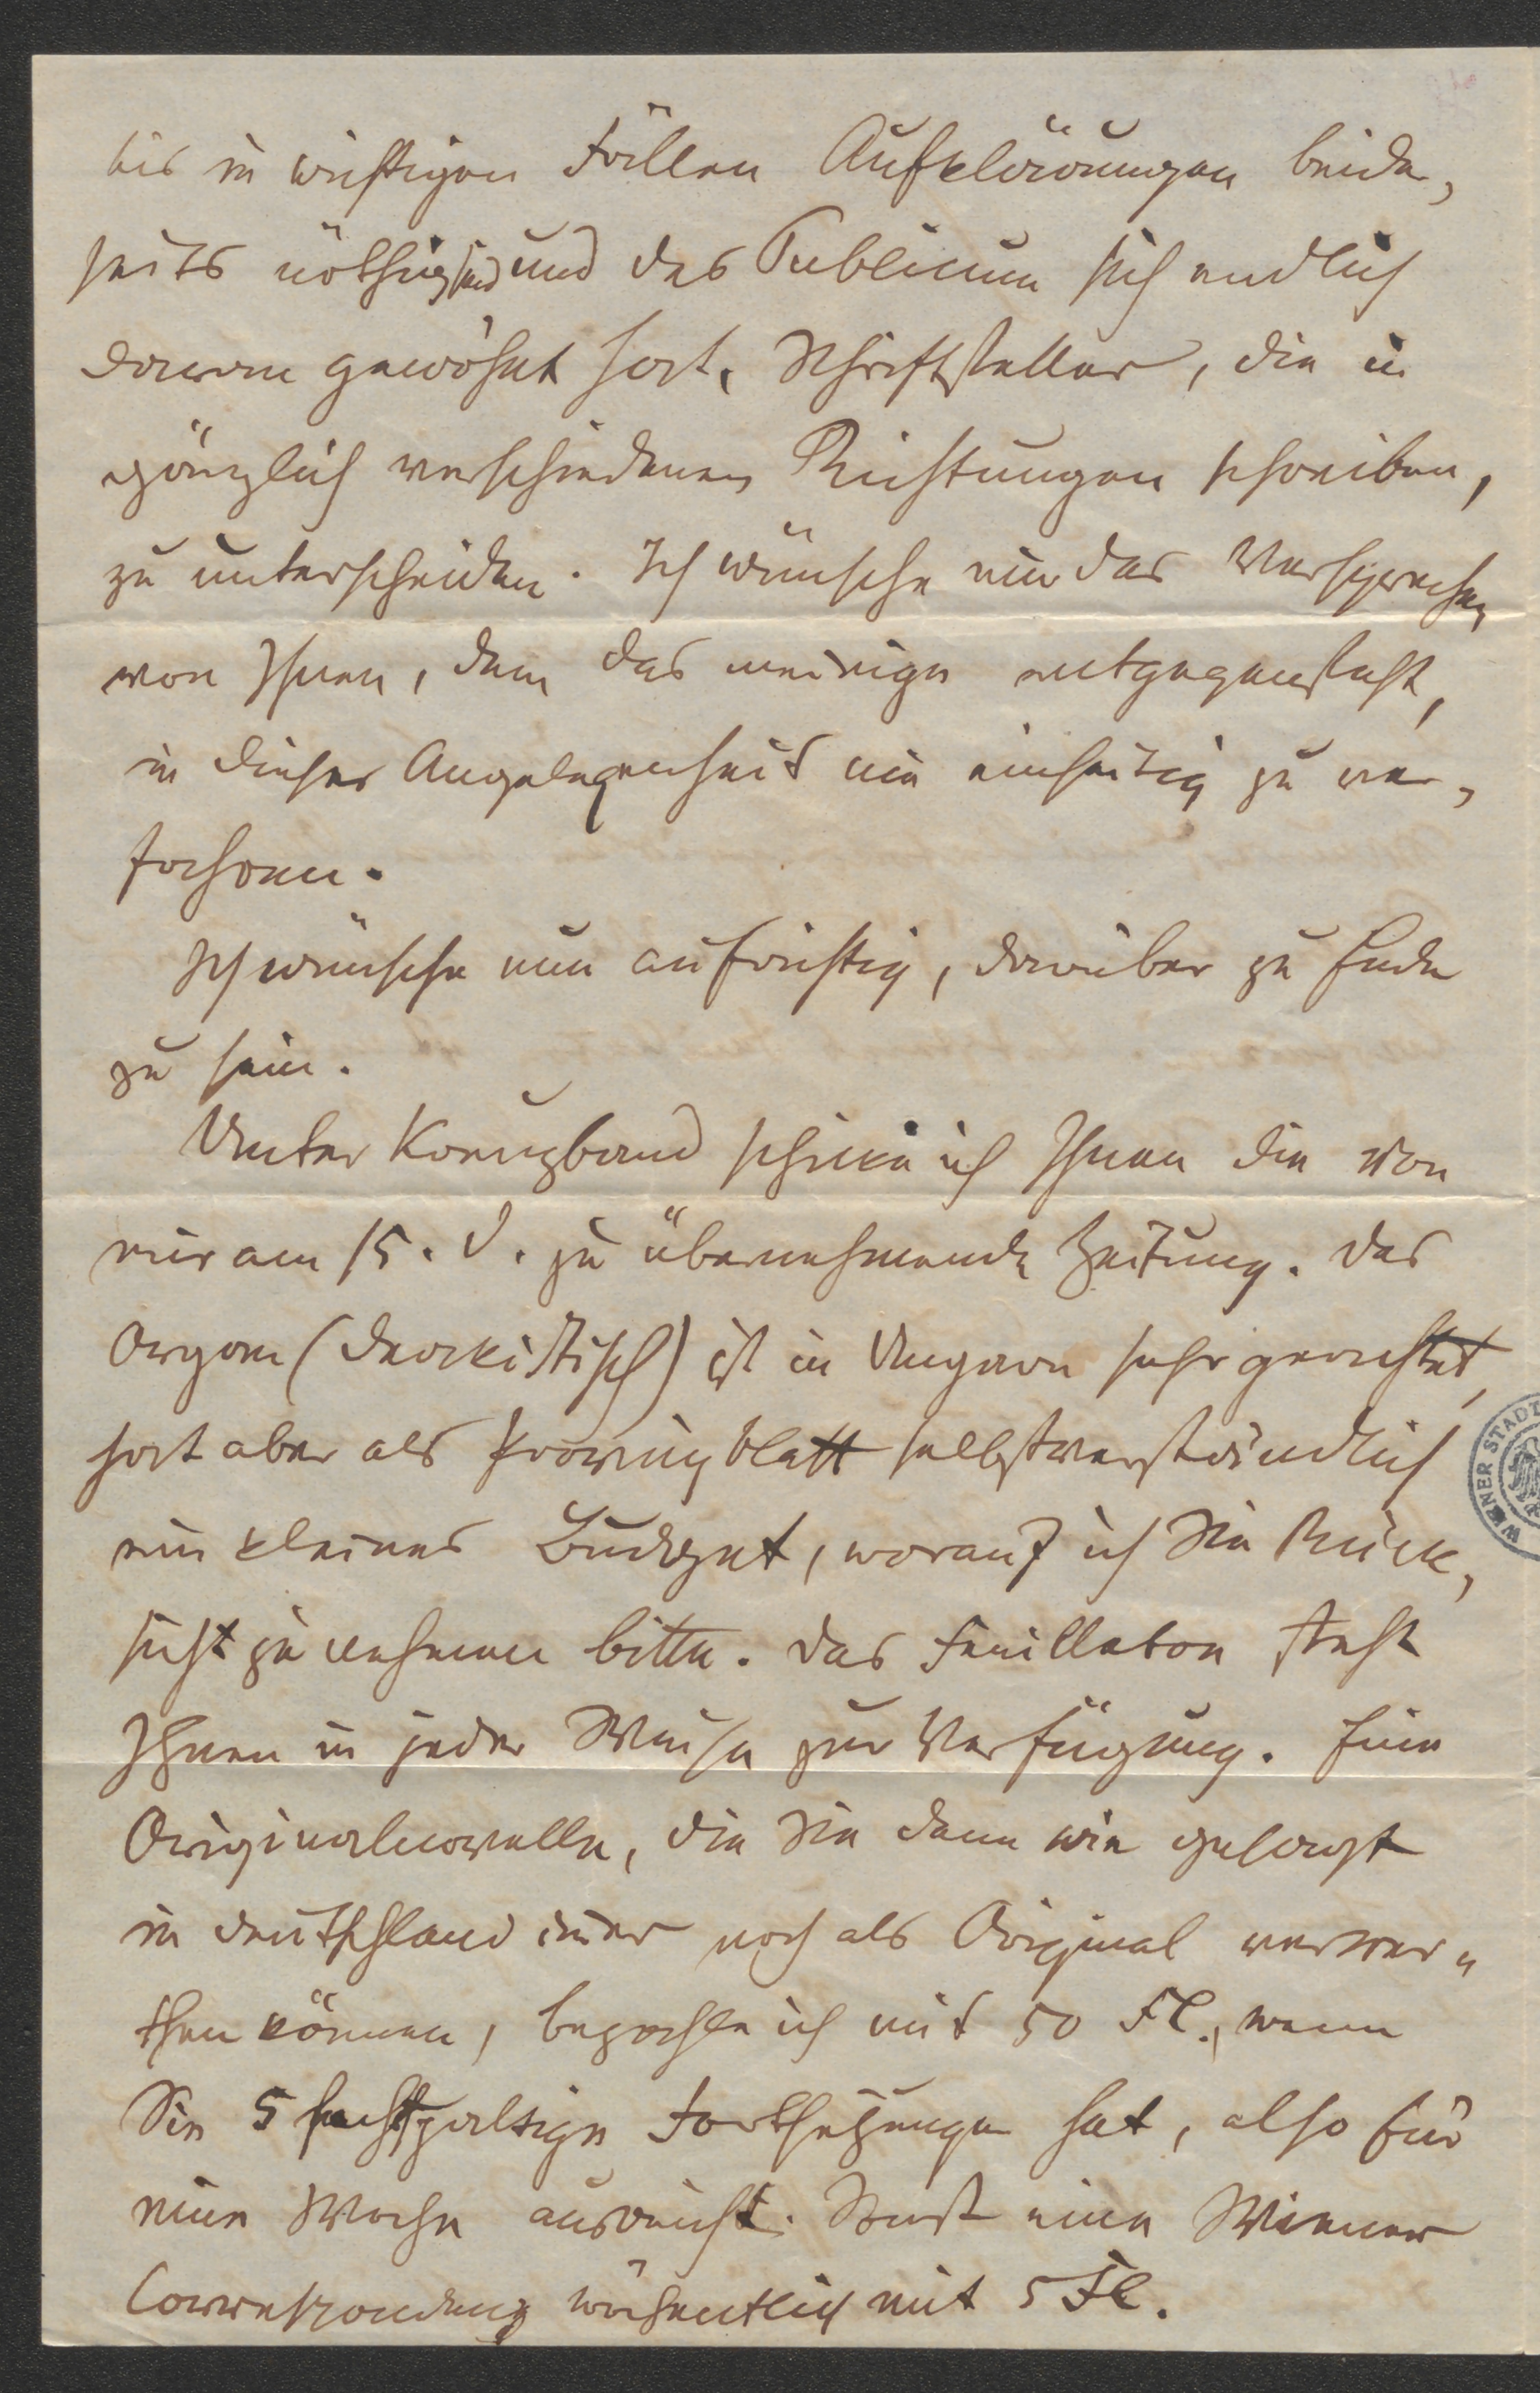 bis in wichtigen Fällen Aufklärungen beider,
seits nöthig sind und das Publicum sich endlich
daran gewöhnt hat, Schriftsteller, die in
gänzlich verschiedenen Richtungen schreiben,
zu unterscheiden. Ich wünsche nur das Versprechen
von Ihnen, dem das meinige entgegensteht,
in dieser Angelegenheit nie einseitig zu ver,
fahren.
Ich wünsche nun aufrichtig, darüber zu Ende
zu sein.
Unter Kreuzband schicke ich Ihnen die von
mir am 15. d. zu übernehmende Zeitung. Das
Organ (deakistisch) ist in Ungarn sehr geachtet,
hat aber als Provinzblatt selbstverständlich
ein kleines Budget, worauf ich Sie Rück,
sicht zu nehmen bitte. Das Feuilleton steht
Ihnen in jeder Weise zur Verfügung. Eine
Originalnovelle, die Sie dann wie gesagt
in Deutschland immer noch als Original verwer„
then können, bezahle ich mit 50 Fl., wenn
Sie 5 sechsspaltige Fortsetzungen hat, also für
eine Woche ausreicht. Sonst eine Wiener
Correspondenz wöchentlich mit 5 Fl.
WIENER STADT